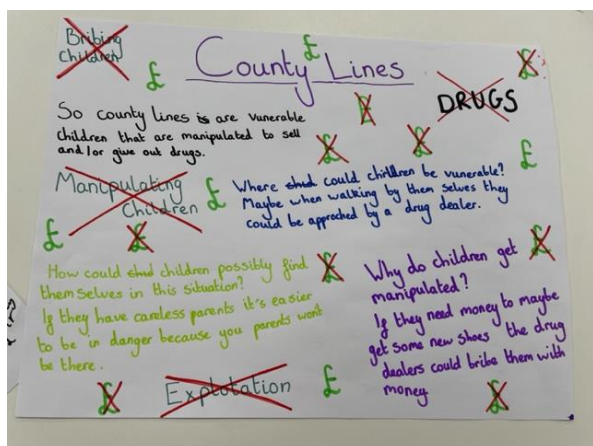 Bribing
Children
£
£
County Lines
£
DRUGS
So county lines is are vunerable
children that are manipulated to sell
and/or give out drugs.
£
£
£
£
Manipulating
Children
£
Where could children be vunerable?
Maybe when walking by them selves they
could be approched by a drug dealer.
£
£
£
How could children possibly find
themselves in this situation?
If they have careless parents it's easier
to be in danger because you parents wont
be there.
£
Why do children get
manipulated?
If they need money to maybe
get some new shoes the drug
dealers could bribe them with
money.
£
Explotation
£
£